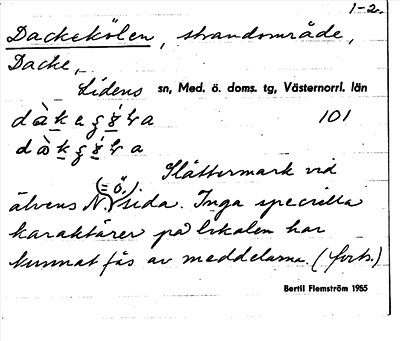 1-2.
Dackekölen, strandområde,
Dacke,
Lidens sn, Med. ö. doms. tg, Västernorrl. län
101
Slåttermark vid
(= ö.)
älvens N. sida. Inga speciella
karaktärer på lokalen har
kunnat fås av meddelarna. (forts.)
Bertil Flemström 1955